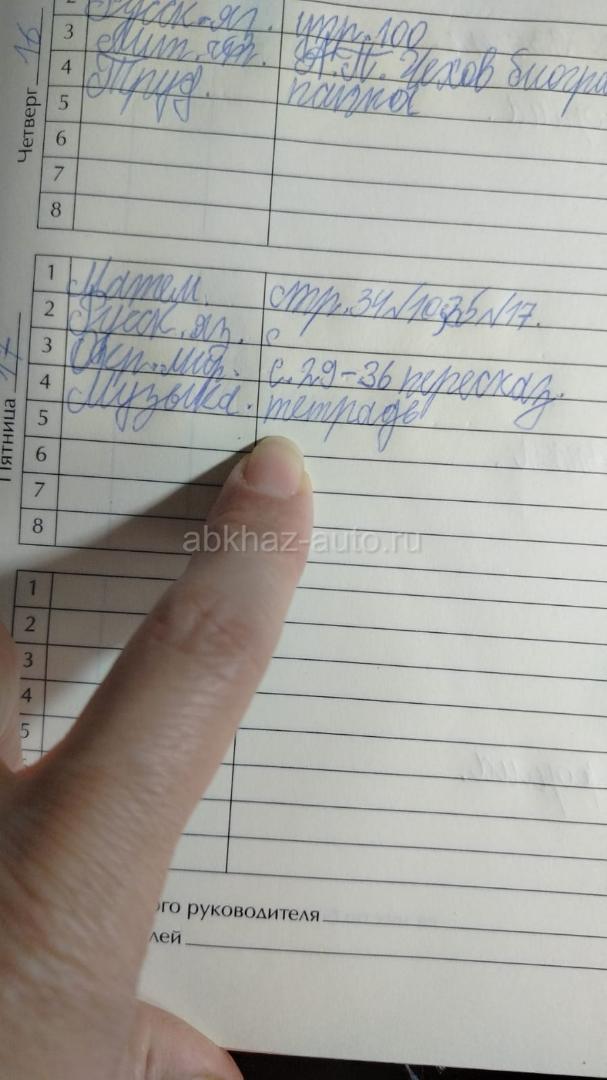 Четверг 16
2
Русск-яз. упр. 100
3
Лит. чт. А.П. Чехов биогра
4
Труд. папка
5
6
7
8
Пятница 17
1
Матем. стр. 34 №10; 35 №17.
2
Русск. яз. с
3
Окр. мир. с. 29-36 пересказ.
4
Музыка. тетрадь
5
6
7
8
abkhaz-auto.ru
1
2
3
4
5
ого руководителя
лей